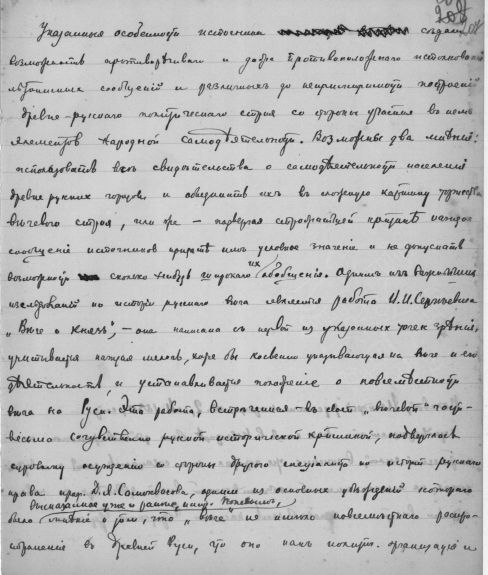 208
Указанныя особенности источника создали
возможность противоречиваго и даже противоположнаго истолкованія
лѣтописныхъ сообщеній и различныхъ до непримиримости построеній
древне-русскаго политическаго строя со стороны участія въ немъ
элементовъ народной самодѣятельности. Возможны два мнѣнія:
использовать всѣ свидѣтельства о самодѣятельности населенія
древне русскихъ городовъ и объединить ихъ въ сложную картину
вѣчевого строя, или же – подвергая строжайшей критикѣ каждое
сообщеніе источниковъ придать имъ условное значеніе и не допускать
возможности сколько нибудь широкаго ихъ обобщенія. Однимъ изъ
изслѣдованій по исторіи русскаго вѣча является работа В. И. Сергѣевича
„Вѣче и Князь", – она написана съ первой из указанных точек зрѣнія,
учитывается каждая мелочь, хотя бы косвенно указывающая на вѣче и его
дѣятельность, и устанавливается положеніе о повсемѣстности
вѣча на Руси. Эта работа, встрѣченная – въ своей „вѣчевой" части
весьма сочувственно русской исторической критикой подверглась
суровому осужденію со стороны другого спеціалиста по исторіи русскаго
права проф. Д. Я. Самоквасова, одним из основных утвержденій котораго
высказанное уже и раньше
было мнѣніе о том, что „вѣче" не имѣло повсемѣстнаго распро-
страненія въ древней Руси, что оно какъ политич. организація и